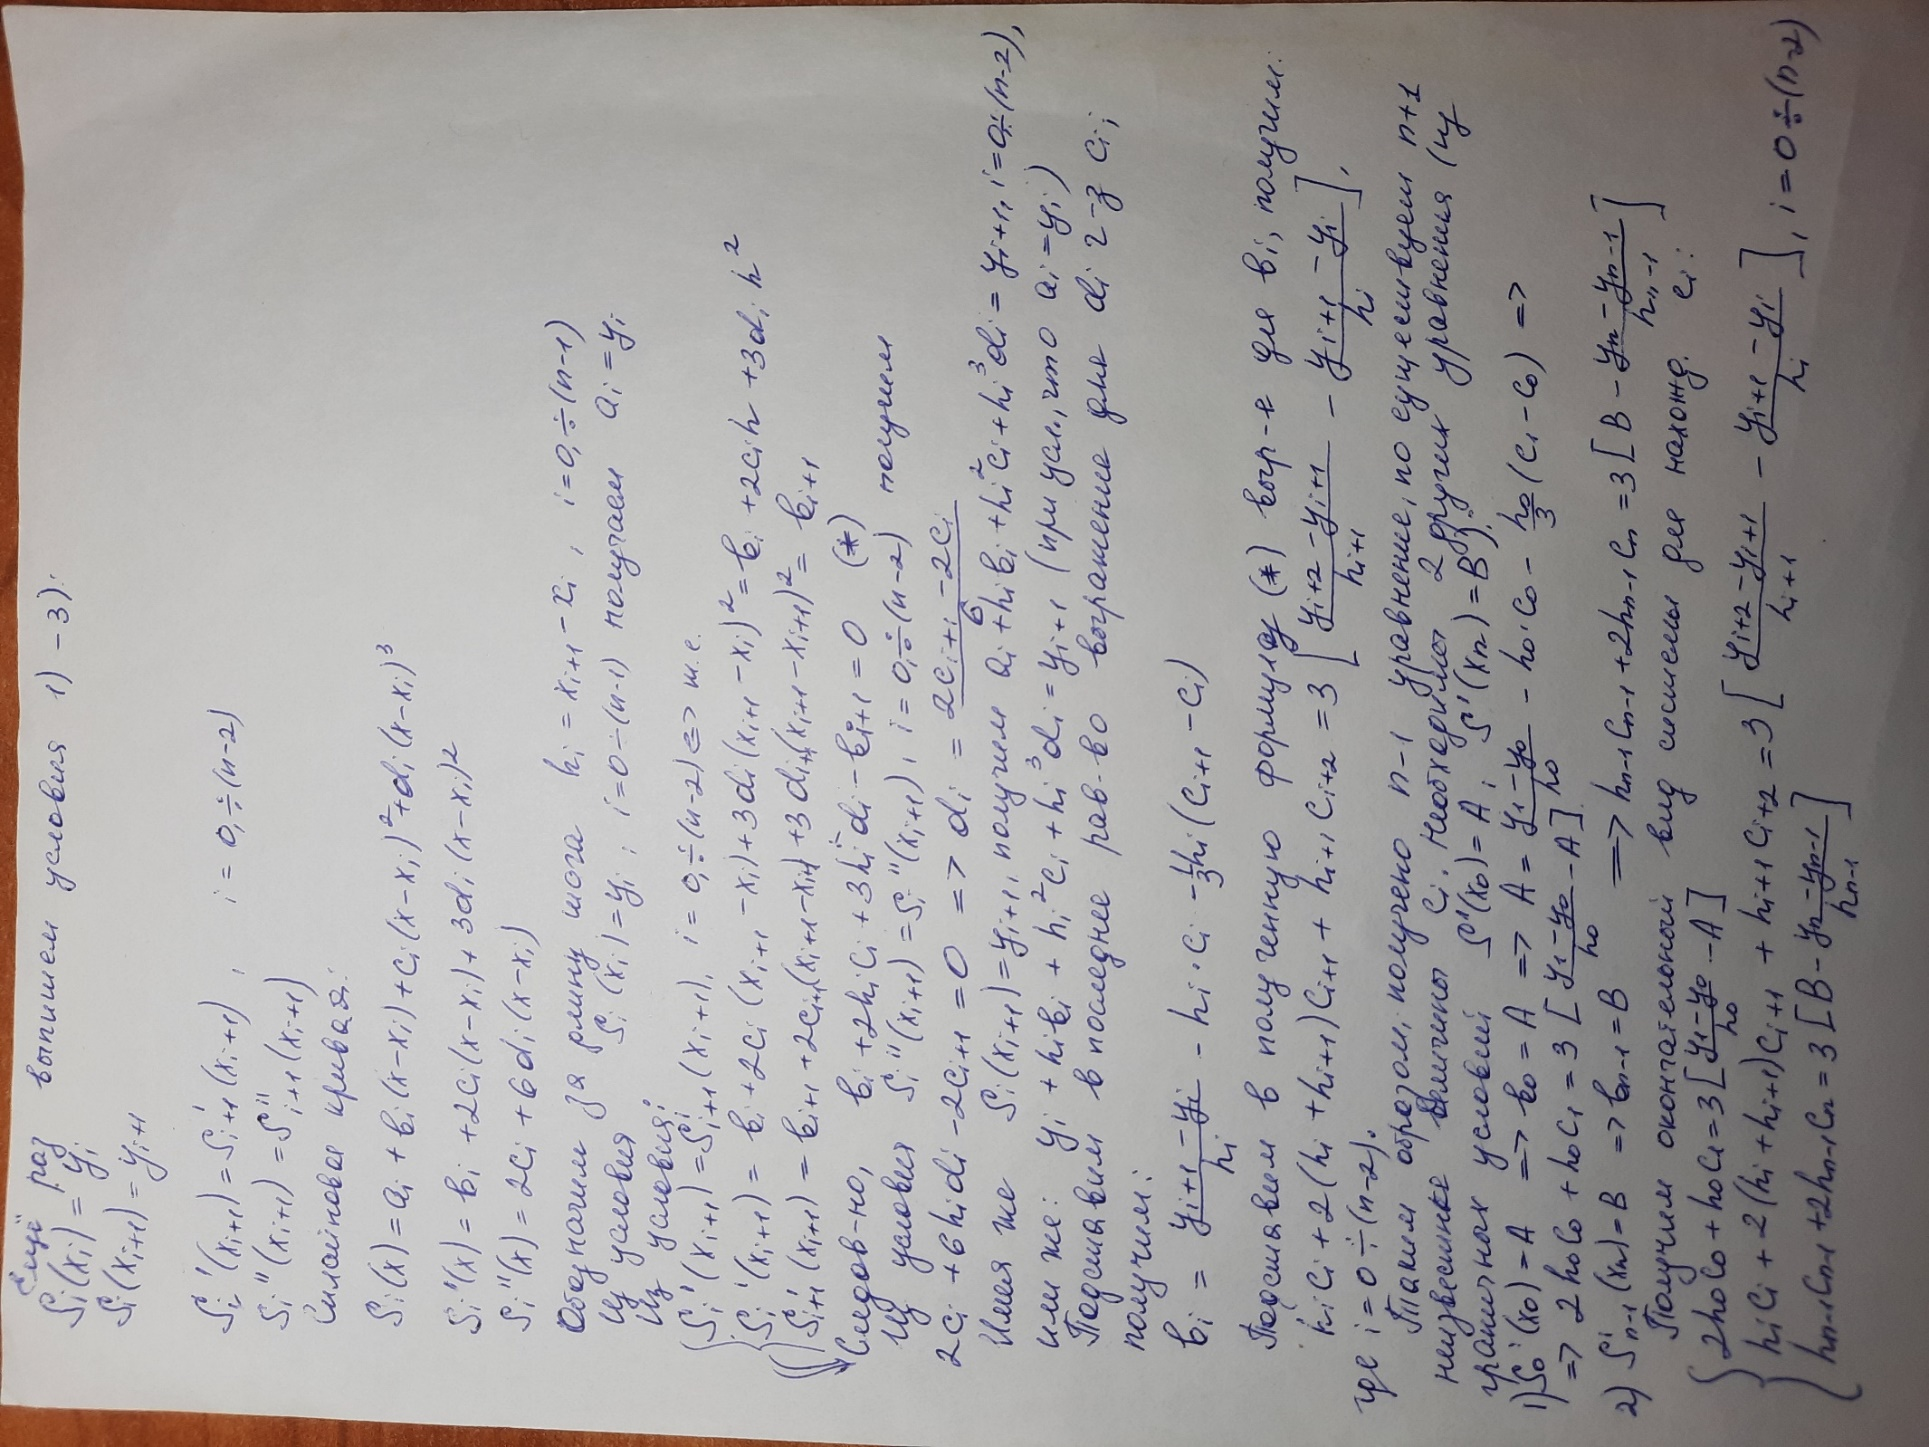 Ещё раз выпишем условия 1) – 3):
Sᵢ(xᵢ) = yᵢ
Sᵢ(xᵢ₊₁) = yᵢ₊₁
Sᵢ'(xᵢ₊₁) = Sᵢ₊₁'(xᵢ₊₁) , i = 0,÷(n-2)
Sᵢ''(xᵢ₊₁) = Sᵢ₊₁''(xᵢ₊₁)
Сплайновая кривая:
Sᵢ(x) = aᵢ + bᵢ(x-xᵢ) + cᵢ(x-xᵢ)² + dᵢ(x-xᵢ)³
Sᵢ'(x) = bᵢ + 2cᵢ(x-xᵢ) + 3dᵢ(x-xᵢ)²
Sᵢ''(x) = 2cᵢ + 6dᵢ(x-xᵢ)
Обозначим за длину шага hᵢ = xᵢ₊₁ - xᵢ , i = 0,÷(n-1)
Из условия Sᵢ(xᵢ) = yᵢ ; i = 0÷(n-1) получаем aᵢ = yᵢ
Из условия:
Sᵢ'(xᵢ₊₁) = Sᵢ₊₁'(xᵢ₊₁), i = 0,÷(n-2) <=> т.е.
Sᵢ'(xᵢ₊₁) = bᵢ + 2cᵢ(xᵢ₊₁ - xᵢ) + 3dᵢ(xᵢ₊₁ - xᵢ)² = bᵢ + 2cᵢh + 3dᵢh²
Sᵢ₊₁'(xᵢ₊₁) = bᵢ₊₁ + 2cᵢ₊₁(xᵢ₊₁ - xᵢ₊₁) + 3dᵢ₊₁(xᵢ₊₁ - xᵢ₊₁)² = bᵢ₊₁
Следов-но, bᵢ + 2hᵢcᵢ + 3hᵢ²dᵢ - bᵢ₊₁ = 0 (*)
Из условия Sᵢ''(xᵢ₊₁) = Sᵢ''(xᵢ₊₁), i = 0,÷(n-2) получаем
2cᵢ + 6hᵢdᵢ - 2cᵢ₊₁ = 0 => dᵢ = (2cᵢ₊₁ - 2cᵢ)/6
Имея же Sᵢ(xᵢ₊₁) = yᵢ₊₁, получаем aᵢ + hᵢbᵢ + hᵢ²cᵢ + hᵢ³dᵢ = yᵢ₊₁, i = 0,÷(n-2),
или же: yᵢ + hᵢbᵢ + hᵢ²cᵢ + hᵢ³dᵢ = yᵢ₊₁ (при усл., что aᵢ = yᵢ)
Подставим в последнее рав-во выражение для dᵢ ч-з cᵢ,
получим:
bᵢ = (yᵢ₊₁ - yᵢ)/hᵢ - hᵢ·cᵢ - ⅓hᵢ(cᵢ₊₁ - cᵢ)
Подставим в полученную формулу (*) выр-е для bᵢ, получим:
hᵢcᵢ + 2(hᵢ + hᵢ₊₁)cᵢ₊₁ + hᵢ₊₁cᵢ₊₂ = 3[(yᵢ₊₂ - yᵢ₊₁)/hᵢ₊₁ - (yᵢ₊₁ - yᵢ)/hᵢ],
где i = 0÷(n-2).
Таким образом, получено n-1 уравнение, но существует n+1
неизвестные величины cᵢ. Необходимы 2 других уравнения (из
граничных условий S'(x₀) = A ; S'(xₙ) = B).
1) S₀'(x₀) = A => b₀ = A => A = (y₁ - y₀)/h₀ - h₀·c₀ - h₀/3(c₁ - c₀) =>
=> 2h₀c₀ + h₀c₁ = 3[(y₁ - y₀)/h₀ - A]
2) Sₙ₋₁'(xₙ) = B => bₙ₋₁ = B => hₙ₋₁cₙ₋₁ + 2hₙ₋₁cₙ = 3[B - (yₙ - yₙ₋₁)/hₙ₋₁]
Получим окончательный вид системы для нахожд. cᵢ:
2h₀c₀ + h₀c₁ = 3[(y₁ - y₀)/h₀ - A]
hᵢcᵢ + 2(hᵢ + hᵢ₊₁)cᵢ₊₁ + hᵢ₊₁cᵢ₊₂ = 3[(yᵢ₊₂ - yᵢ₊₁)/hᵢ₊₁ - (yᵢ₊₁ - yᵢ)/hᵢ], i = 0÷(n-2)
hₙ₋₁cₙ₋₁ + 2hₙ₋₁cₙ = 3[B - (yₙ - yₙ₋₁)/hₙ₋₁]